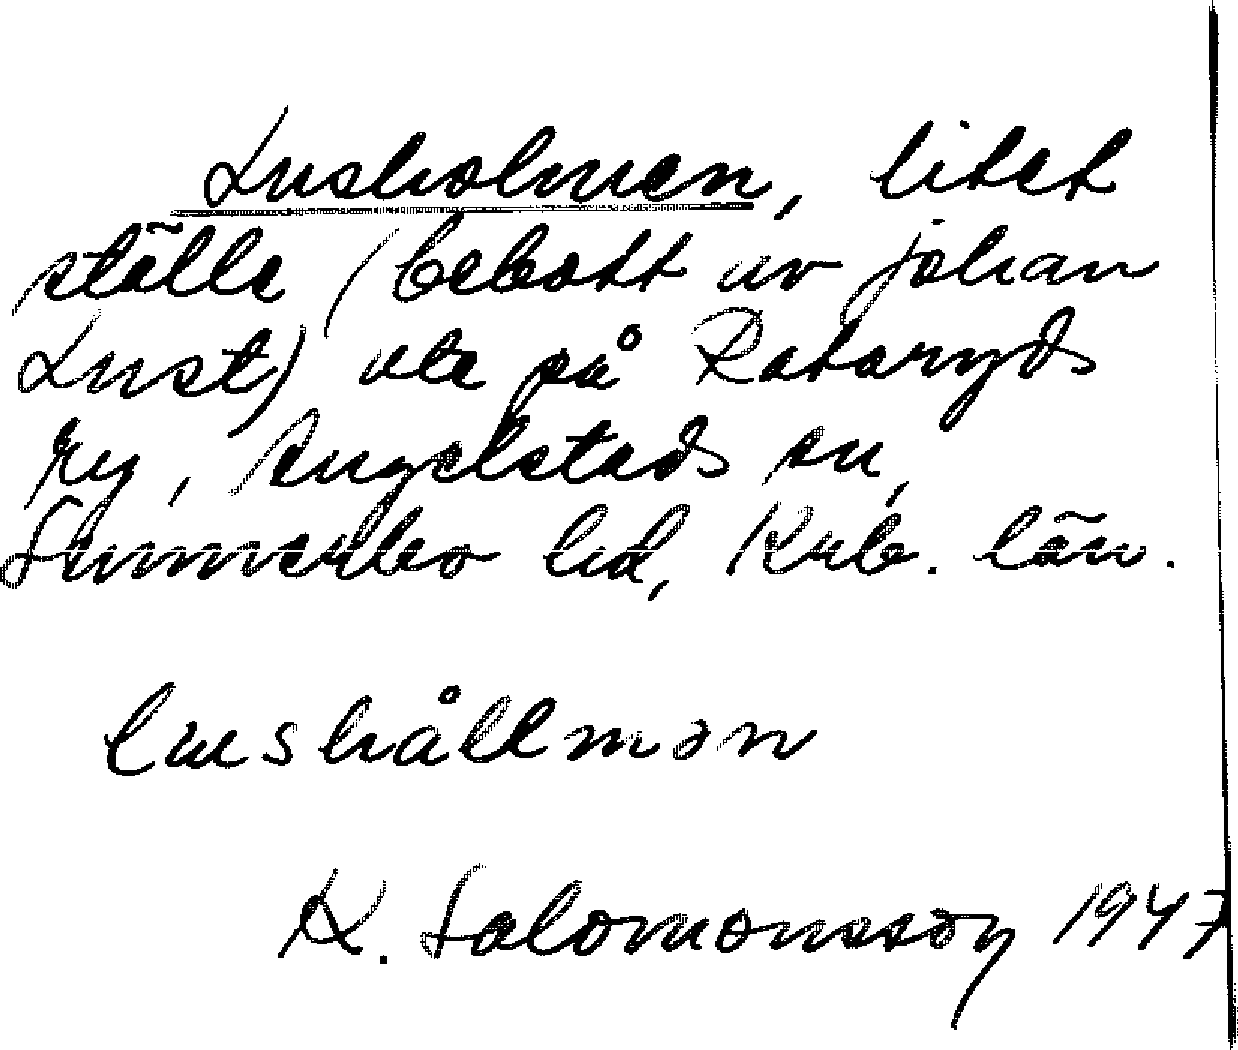 Lusholmen, litet
ställe (bebott av Johan
Lust) ute på Rataryds
ry, Angelstads sn,
Sunnerbo hd, Krb. län.
lushållmən
K. Salomonsson 1947